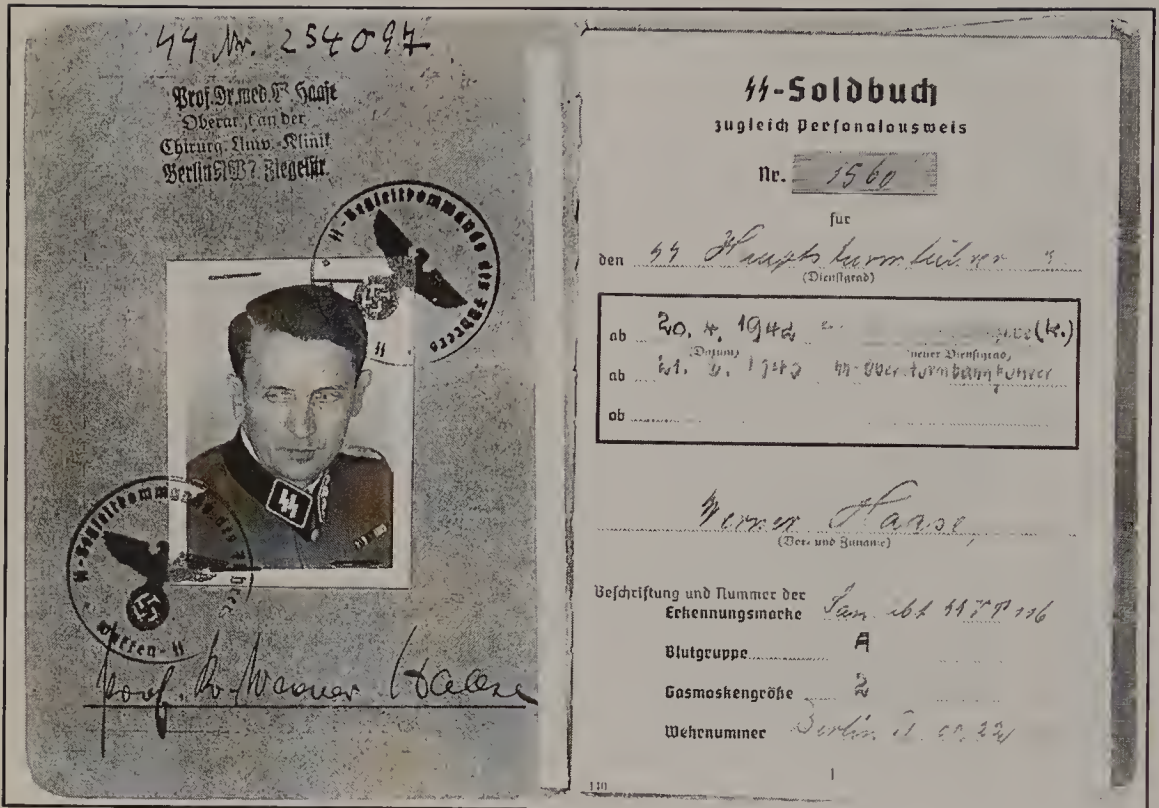 ϟϟ Nr. 254097
Prof. Dr. med. W. Haase
Oberarzt an der
Chirurg. Univ.-Klinik
Berlin NW 7, Ziegelstr.
ϟϟ-Begleitkommando des Führers
ϟϟ
ϟϟ-Begleitkommando des Führers
Waffen-ϟϟ
Prof. Dr. Werner Haase
ϟϟ-Soldbuch
zugleich Personalausweis
Nr. 1560
für
den ϟϟ Hauptsturmführer
(Dienstgrad)
ab 20. 4. 1942 (k.)
(Datum) neuer Dienstgrad)
ab 1943 ϟϟ-Obersturmbannführer
ab
Werner Haase,
(Vor- und Zuname)
Beschriftung und Nummer der
Erkennungsmarke San
Blutgruppe A
Gasmaskengröße 2
Wehrnummer Berlin
1
110